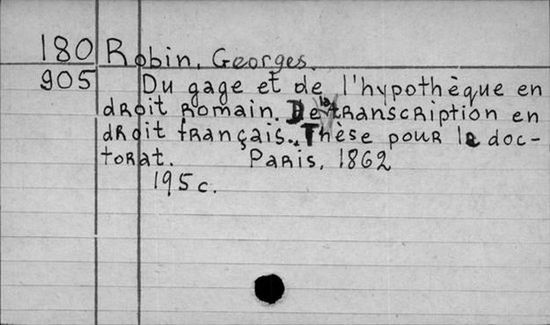 180 Robin, Georges.
905 Du gage et de l'hypothèque en
droit romain. De la transcription en
droit français. Thèse pour le doc-
torat. Paris, 1862
195 c.